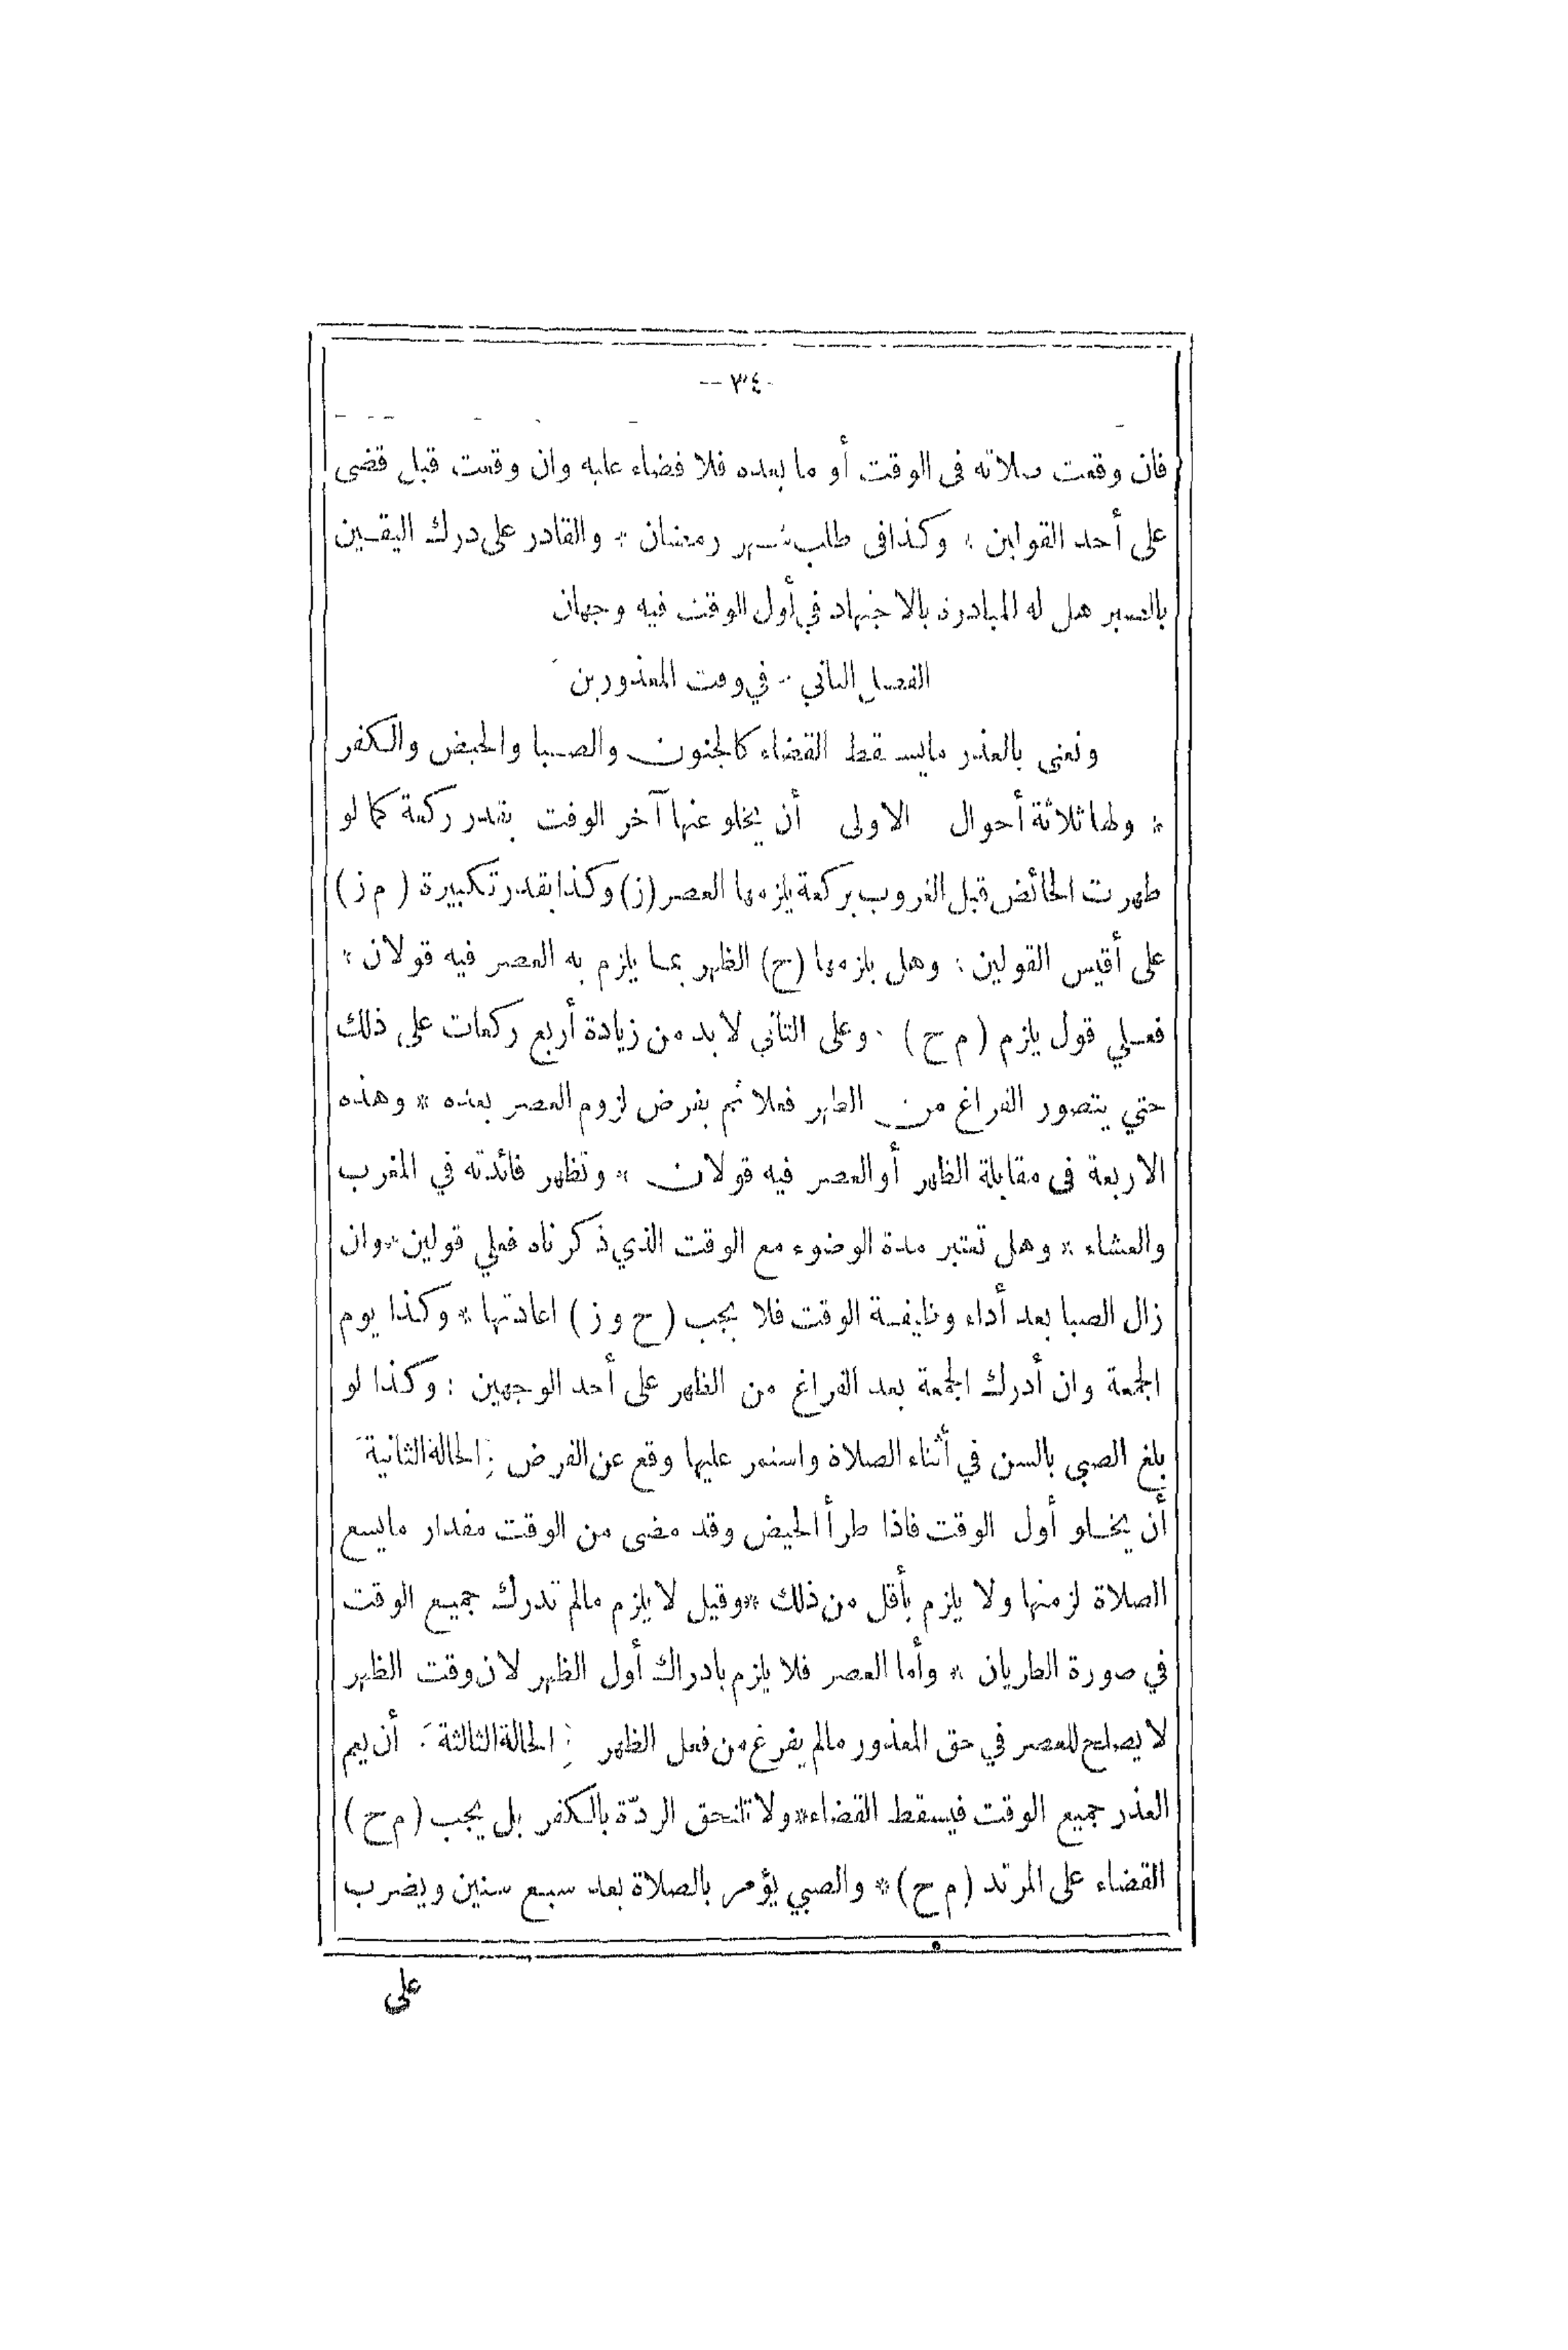 -٣٤--
فان وقعت صلاته فى الوقت أو ما بعده فلا قضاء عليه وان وقعت قبل قضى
على أحد القولين * وكذا فى طلب شهر رمضان * والقادر على درك اليقين
بالصبر هل له المبادرة بالاجتهاد في أول الوقت فيه وجهان
الفصل الثاني - في وقت المعذورين
ونعني بالعذر ما يسقط القضاء كالجنون والصبا والحيض والكفر
* ولها ثلاثة أحوال الاولى أن يخلو عنها آخر الوقت بقدر ركعة كما لو
طهرت الحائض قبل الغروب بركعة يلزمها العصر (ز) وكذا بقدر تكبيرة (م ز)
على أقيس القولين : وهل يلزمها (ح) الظهر بما يلزم به العصر فيه قولان *
فعلي قول يلزم (م ح) . وعلى الثاني لا بد من زيادة أربع ركعات على ذلك
حتي يتصور الفراغ من الظهر فعلا ثم يفرض لزوم العصر بعده * وهذه
الاربعة فى مقابلة الظهر أو العصر فيه قولان * وتظهر فائدته في المغرب
والعشاء * وهل تعتبر مدة الوضوء مع الوقت الذي ذكرناه فعلي قولين * وان
زال الصبا بعد أداء وظيفة الوقت فلا يجب (ح و ز) اعادتها * وكذا يوم
الجمعة وان أدرك الجمعة بعد الفراغ من الظهر على أحد الوجهين : وكذا لو
بلغ الصبي بالسن في أثناء الصلاة واستمر عليها وقع عن الفرض : الحالة الثانية
أن يخلو أول الوقت فاذا طرأ الحيض وقد مضى من الوقت مقدار ما يسع
الصلاة لزمتها ولا يلزم بأقل من ذلك * وقيل لا يلزم مالم تدرك جميع الوقت
في صورة الطريان * وأما العصر فلا يلزم بادراك أول الظهر لان وقت الظهر
لا يصلح للعصر في حق المعذور مالم يفرغ من فعل الظهر : الحالة الثالثة : أن يعم
العذر جميع الوقت فيسقط القضاء * ولا تلتحق الردّة بالكفر بل يجب (م ح)
القضاء على المرتد (م ح) * والصبي يؤمر بالصلاة بعد سبع سنين ويضرب
على